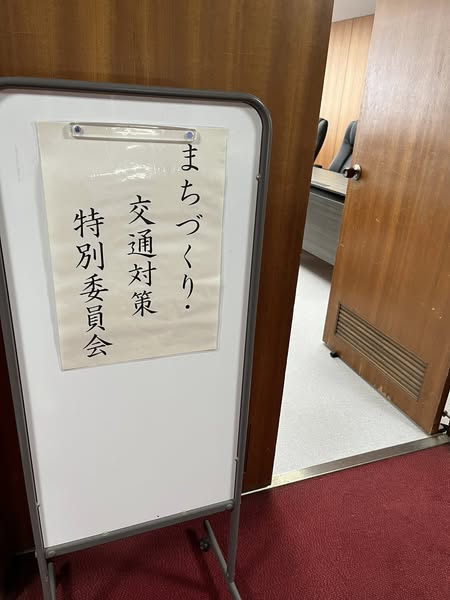 まちづくり・
交通対策
特別委員会